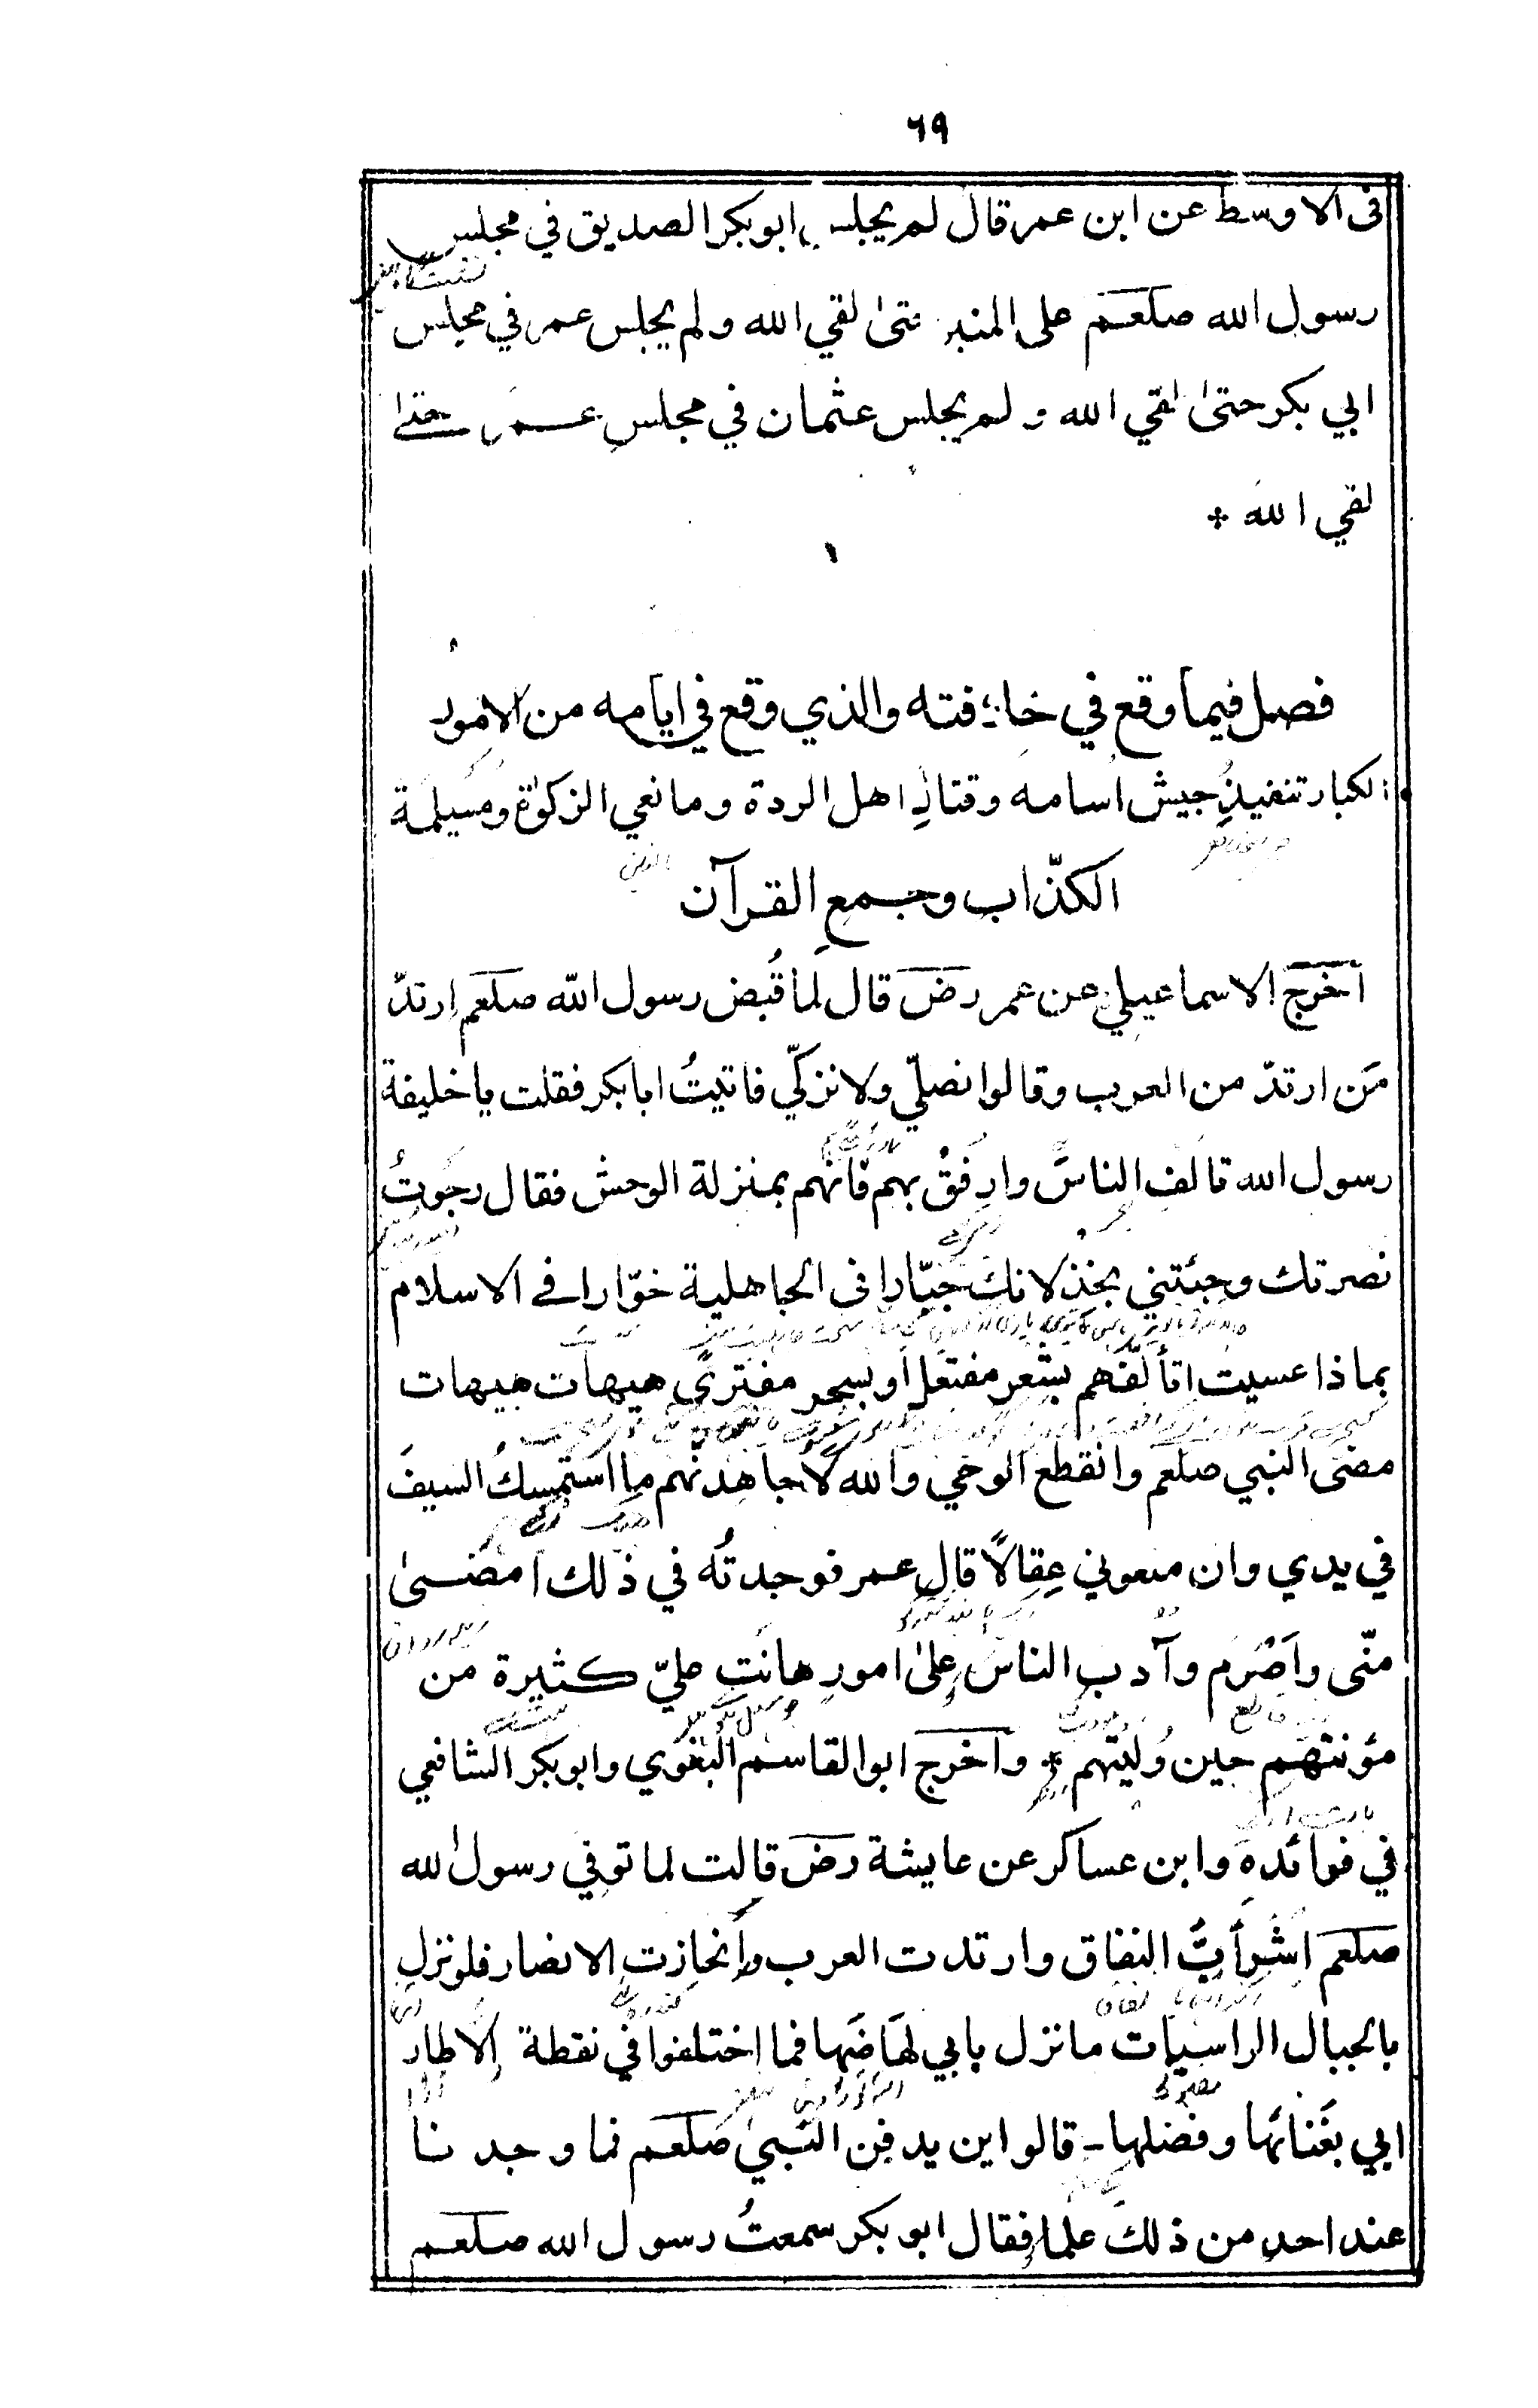 ٦٩
فى الاوسط عن ابن عمر قال لم يجلس ابوبكر الصديق في مجلس
رسول الله صلعم على المنبر حتىٰ لقي الله ولم يجلس عمر في مجلس
ابي بكر حتىٰ لقي الله ولم يجلس عثمان في مجلسِ عمر حتىٰ
لقي الله *
فصل فيما وقع في خلافته والذي وقع في ايامه من الامور
الكبار تنفيذِ جيش اسامه وقتالِ اهل الردة ومانعي الزكوٰة ومسيلمة
الكذّاب وجمعِ القرآن
اخرج الاسماعيلي عن عمر رض قال لما قُبض رسول الله صلعم ارتدّ
مَن ارتدّ من العرب وقالوا نصلّي ولا نزكّي فاتيتُ ابابكر فقلت يا خليفة
رسول الله تالف الناسَ وارفُقْ بهم فانهم بمنزلة الوحش فقال رجوتُ
نصرتك وجئتني بخذلانك جبّارا فى الجاهلية خوّارا في الاسلام
بماذا عسيت اتألّفهم بشعر مفتعل او بسحر مفترًى هيهات هيهات
مضى النبي صلعم وانقطع الوحي والله لاجاهدنّهم ما استمسك السيفَ
في يدي وان منعوني عِقالًا قال عمر فوجدتُه في ذلك امضىٰ
منّى واَصْرَم وآدب الناسَ علىٰ امورٍ هانَت عليّ كثيرة من
مؤنتهم حين وُليتهم * واخرج ابوالقاسم البغوي وابوبكر الشافعي
في فوائده وابن عساكر عن عايشة رض قالت لما توفي رسول الله
صلعم اشرأبّ النفاق وارتدت العرب وانحازت الانصار فلو نزل
بالجبال الراسيات ما نزل بابي لهَاضَها فما اختلفوا في نقطة الا طار
ابي بغَنائها وفضلها ـ قالوا اين يدفن النبي صلعم فما وجدنا
عند احدٍ من ذلك علما فقال ابو بكر سمعتُ رسول الله صلعم